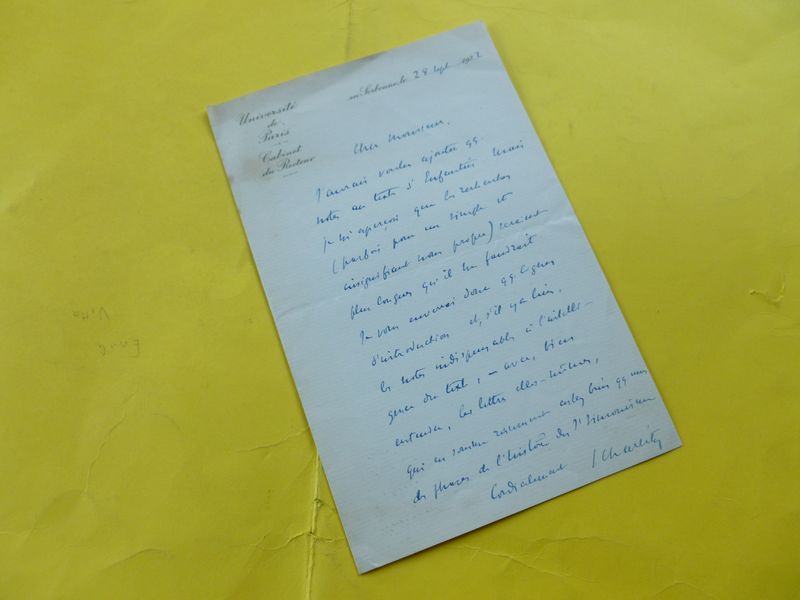 Université
de
Paris
Cabinet
du Recteur
en Sorbonne, le 28 Sept 1932
Cher Monsieur,
J'aurais voulu ajouter qq.
notes au texte d'Enfantin mais
je m'aperçois que les recherches
(parfois pour un simple et
insignifiant nom propre) seraient
plus longues qu'il ne faudrait
Je vous enverrai donc qq. lignes
d'introduction et, s'il y a lieu,
les notes indispensables à l'intelli-
gence du texte, — avec, bien
entendu, les lettres elles-mêmes,
qui en somme résument assez bien qq unes
des phases de l'histoire des St Simoniens
Cordialement S Charléty